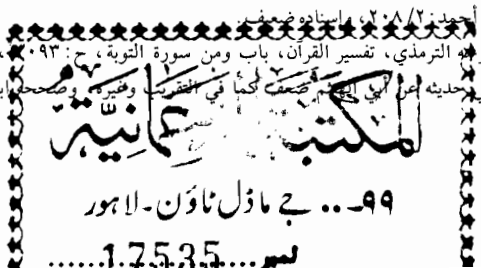 أحمد: ٢٠٨/٢، وإسناده ضعيف.
الترمذي، تفسير القرآن، باب ومن سورة التوبة، ح: ٣٠٩٣،
حديثه عن أبي الهيثم ضعف كما في التقريب وغيره، وصححه
المكتبۃ
۹۹۔۔۔ جے ماڈل ٹاؤن۔لاہور
نمبر.....17535.....